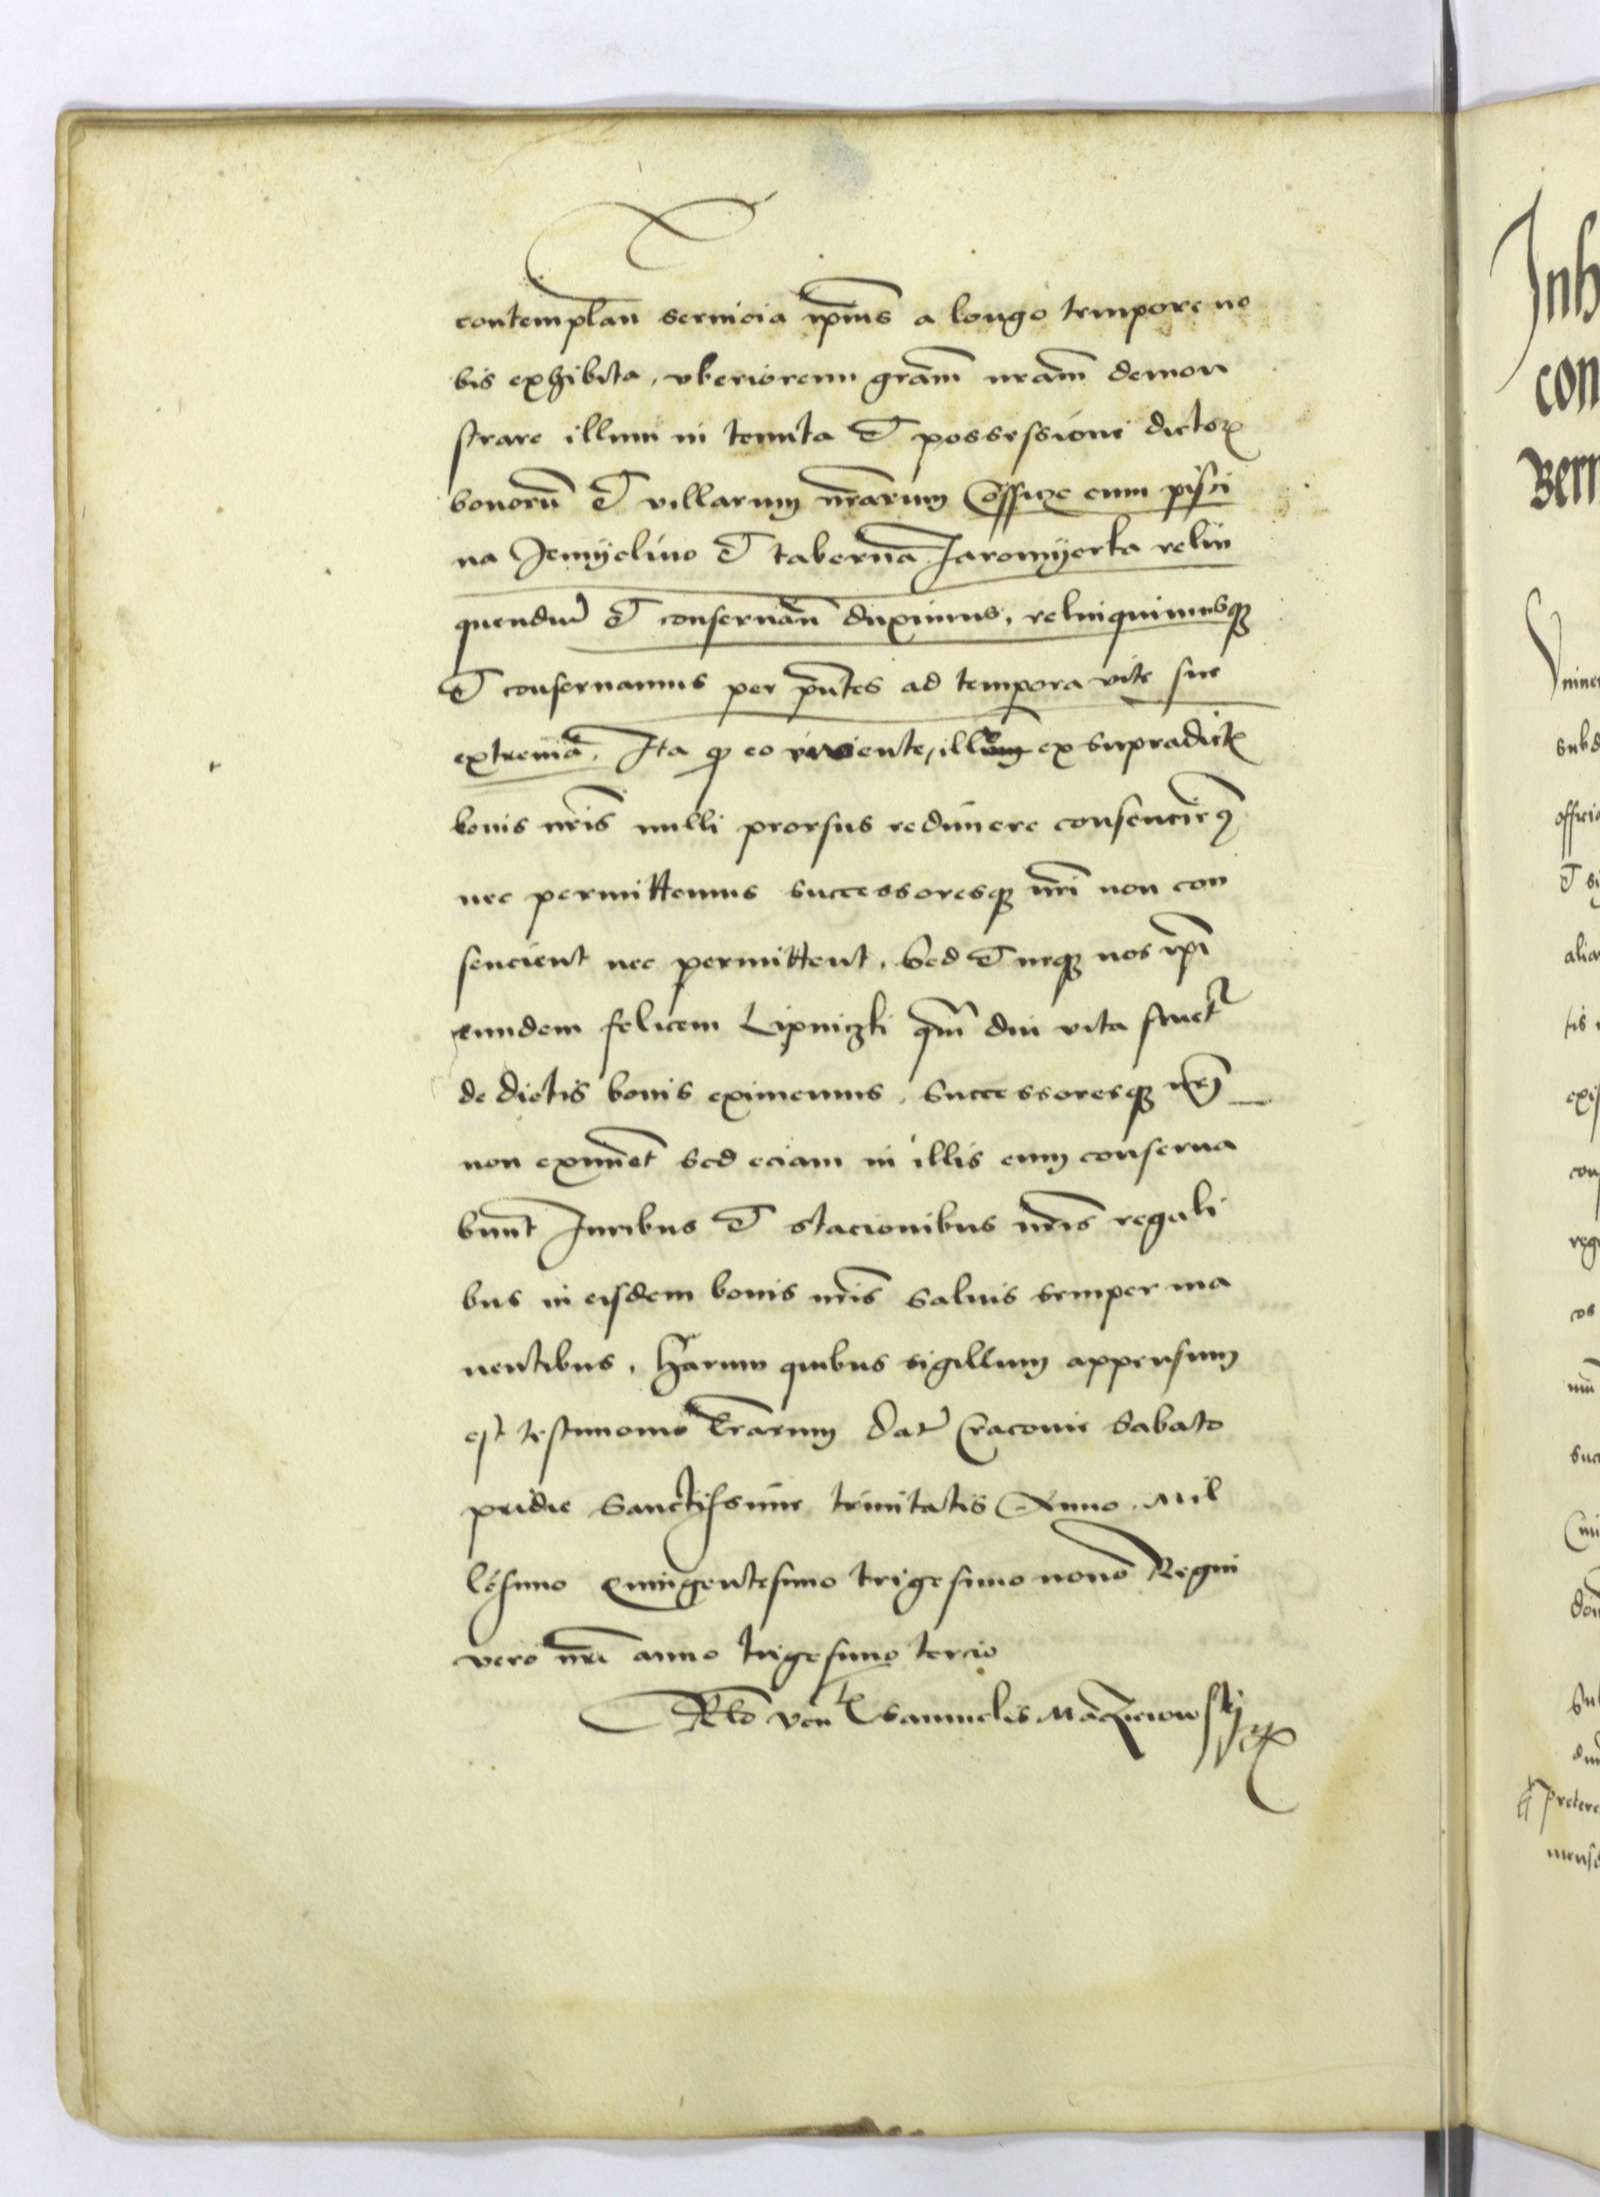 contemplan servicia ipius a longo tempore no
bis exhibita, vberiorem gram nram demon
strare illum in tenuta et possessione dictor
bonoru et villarum nrarum cum pisci
na Jemyelino et taberna Jaromyerka relin
quendu et conservan duximus, relinquimusq
et conservamus per pntes ad tempora vite sue
extrema. Ita q eo vivente, ex supradict
bonis nris nulli prorsus redimere consencie
nec permittemus successoresq nri non con
sencient nec permittent. Sed et neq nos ipi
eundem felicem Lipniczki qm diu vita fruet
de dictis bonis eximemus, Successoresq nri
non eximet sed eciam in illis eum conserva
bunt Juribus et stacionibus nris regali
bus in eisdem bonis nris salvis semper ma
nentibus. Harum quibus sigillum appensum
est testimonio lrarum Dat Cracovie Sabato
pridie Sanctissime trinitatis Anno Mil
lesimo Quingentesimo trigesimo nono Regni
vero nri anno trigesimo tercio
Rlo ven Samuelis Maczieiowskij
Inh
con
Bern